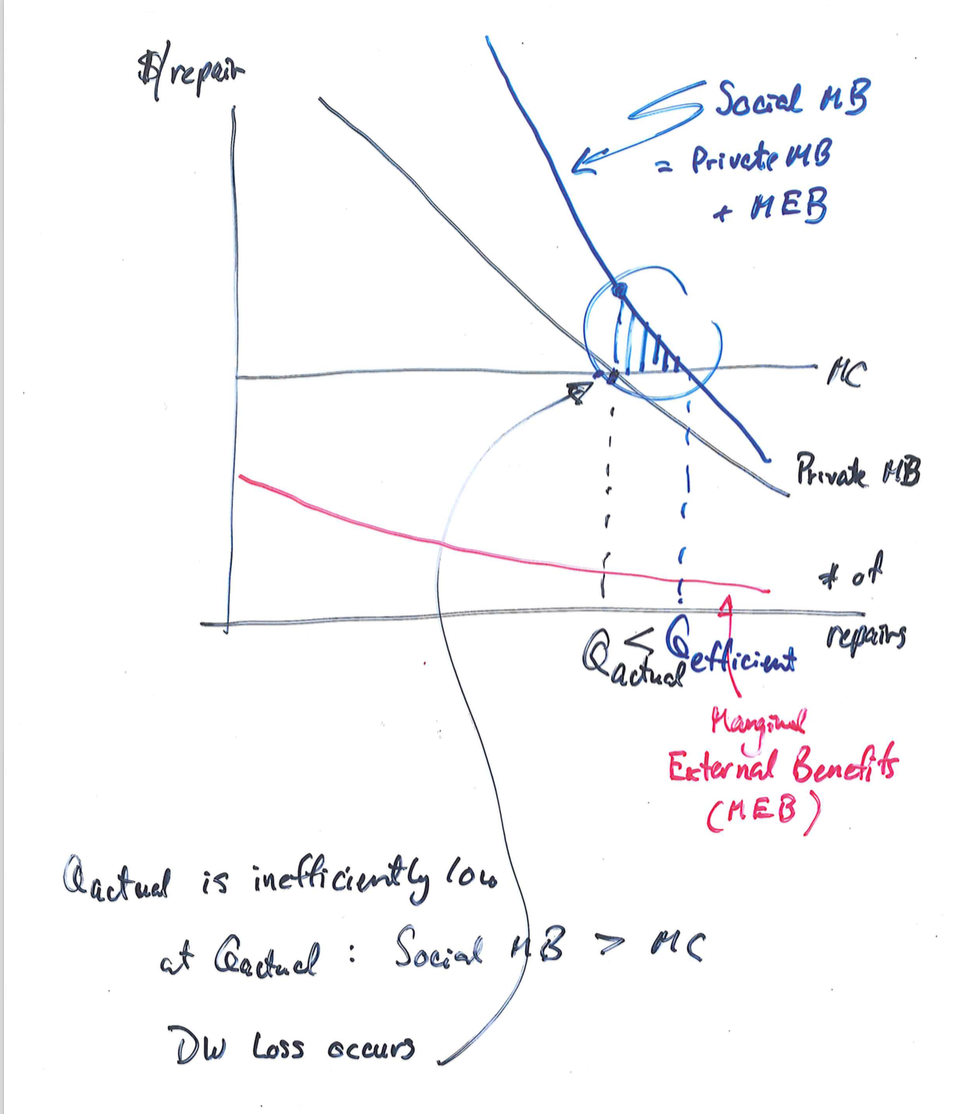 $/repair
Social MB
= Private MB
+ MEB
MC
Private MB
# of
repairs
Qactual < Qefficient
Marginal
External Benefits
(MEB)
Qactual is inefficiently low
at Qactual : Social MB > MC
DW Loss occurs